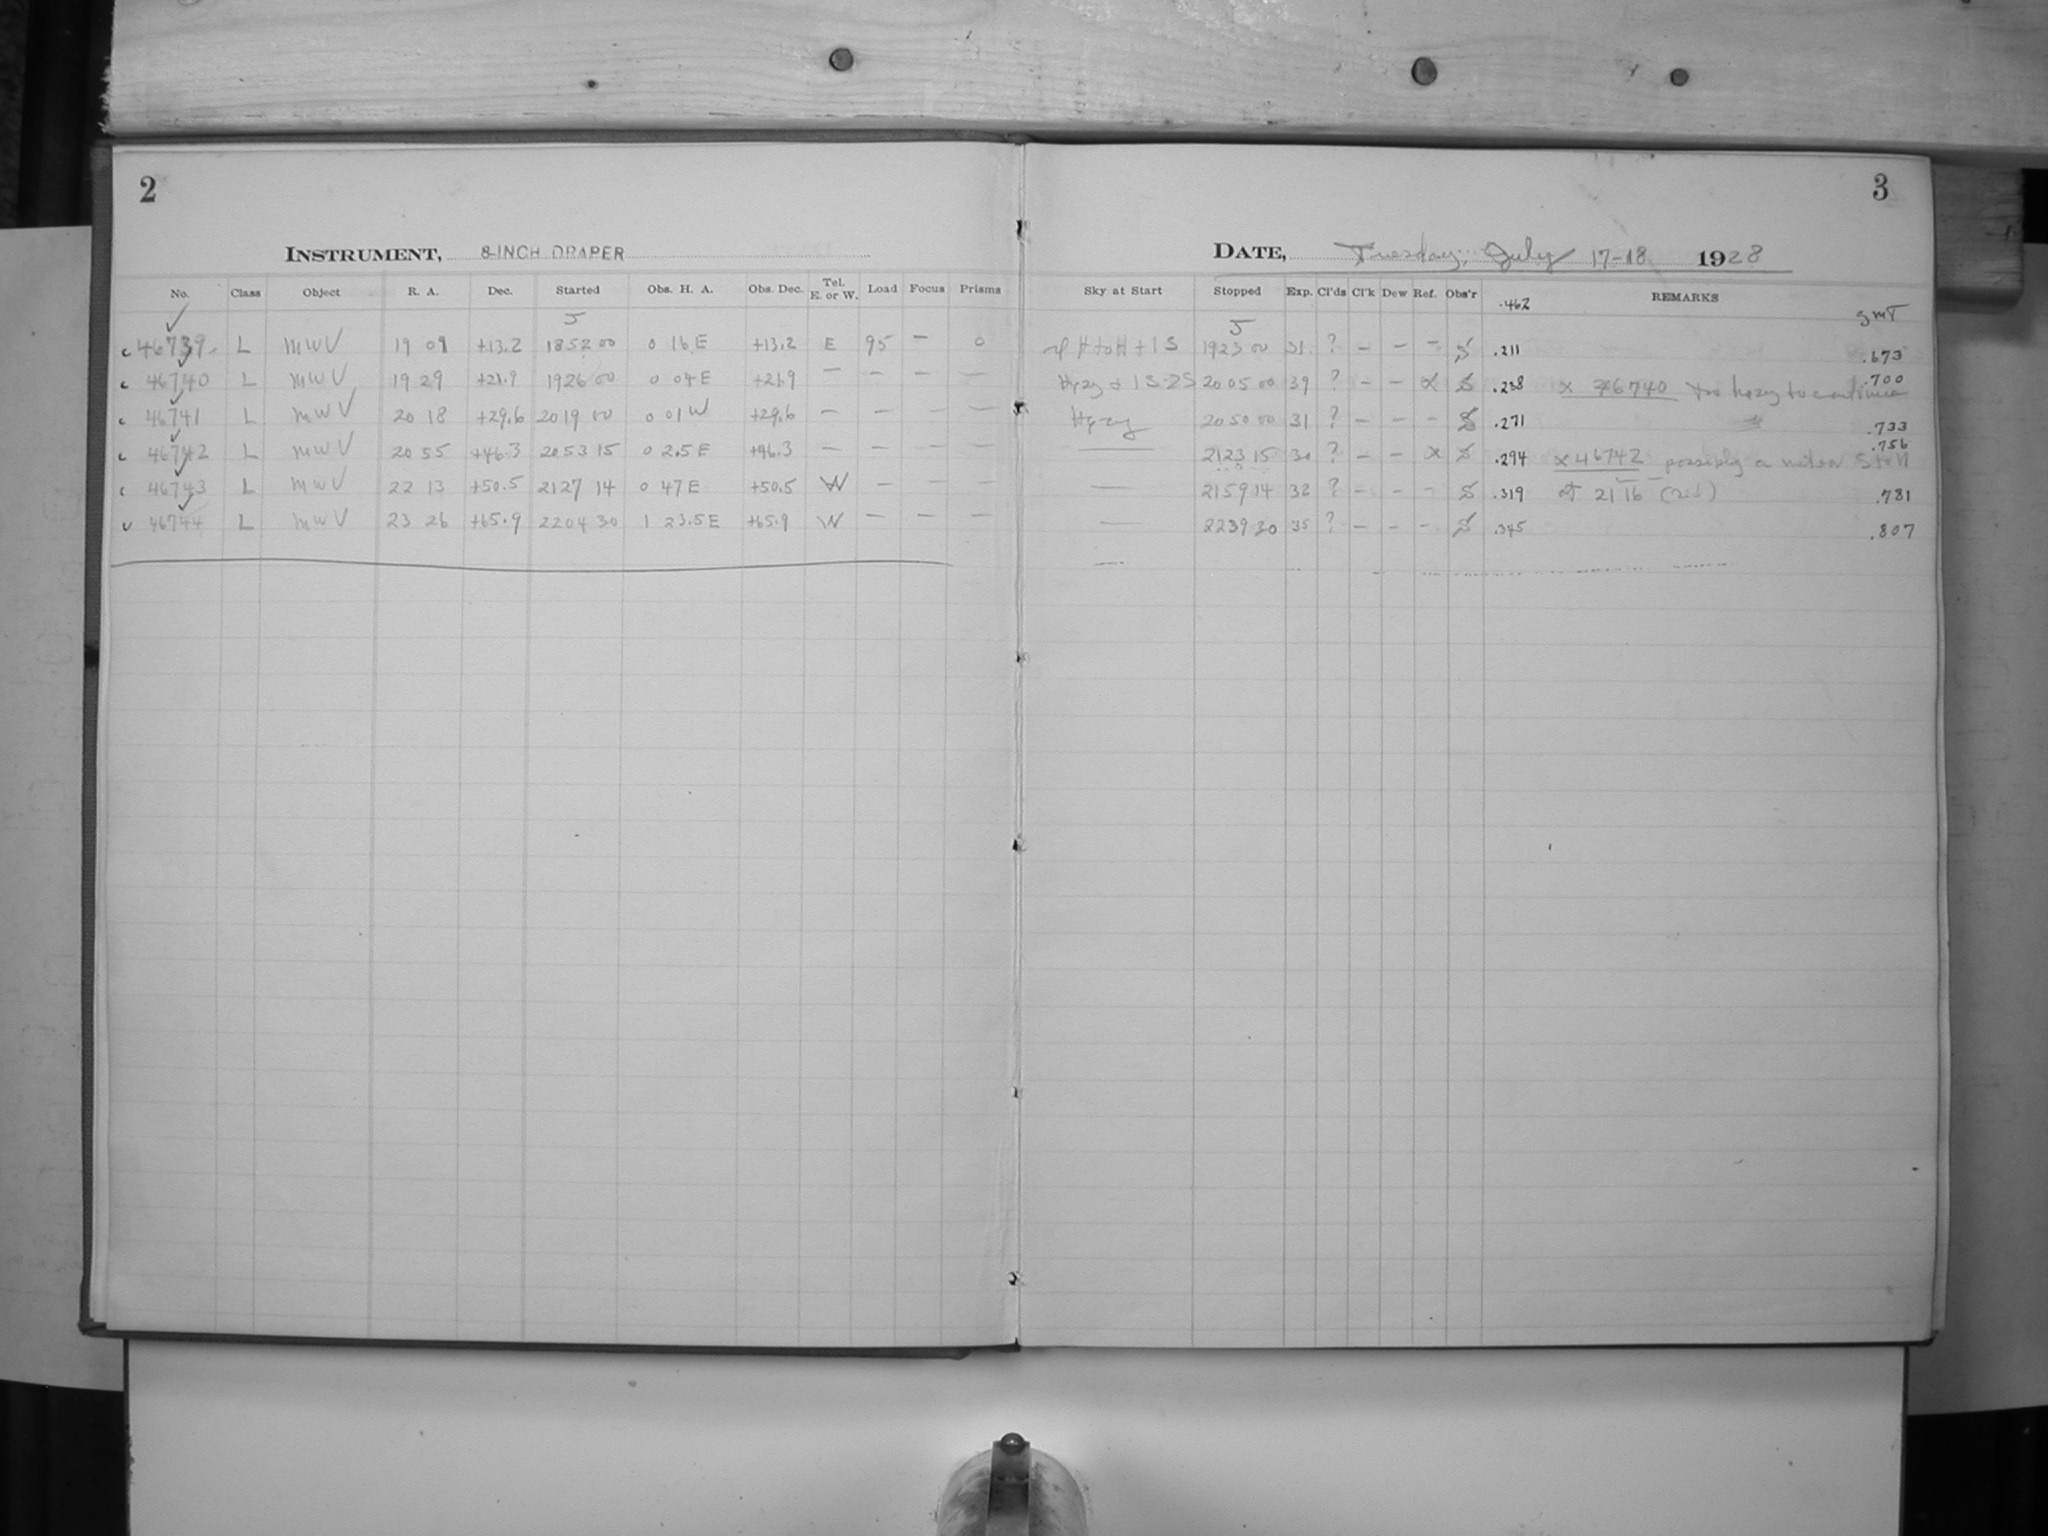 2
3
INSTRUMENT, 8-INCH DRAPER
DATE, Tuesday, July 17-18 1928
No. Class Object R. A. Dec. Started Obs. H. A. Obs. Dec. Tel. E. or W. Load Focus Prisms Sky at Start Stopped Exp. Cl'ds Cl'k Dew Ref. Obs'r .462 REMARKS GMT
46739 L MWV 19 09 +13.2 18 52 00 0 16 E +13.2 E 95 — 0 19 23 00 31 ? — — — S .211 .673
46740 L MWV 19 29 +21.9 19 26 00 0 04 E +21.9 — — — — Hazy 20 05 00 39 ? — — X S .238 X 46740 too hazy to continue .700
46741 L MWV 20 18 +29.6 20 19 00 0 01 W +29.6 — — — — Hazy 20 50 00 31 ? — — — S .271 .733
46742 L MWV 20 55 +46.3 20 53 15 0 2.5 E +46.3 — — — — — 21 23 15 30 ? — — X S .294 X 46742 possibly a meteor S to N .756
46743 L MWV 22 13 +50.5 21 27 14 0 47 E +50.5 W — — — — 21 59 14 32 ? — — — S .319 at 21 16 (sid) .781
46744 L MWV 23 26 +65.9 22 04 30 1 23.5 E +65.9 W — — — — 22 39 30 35 ? — — — S .345 .807